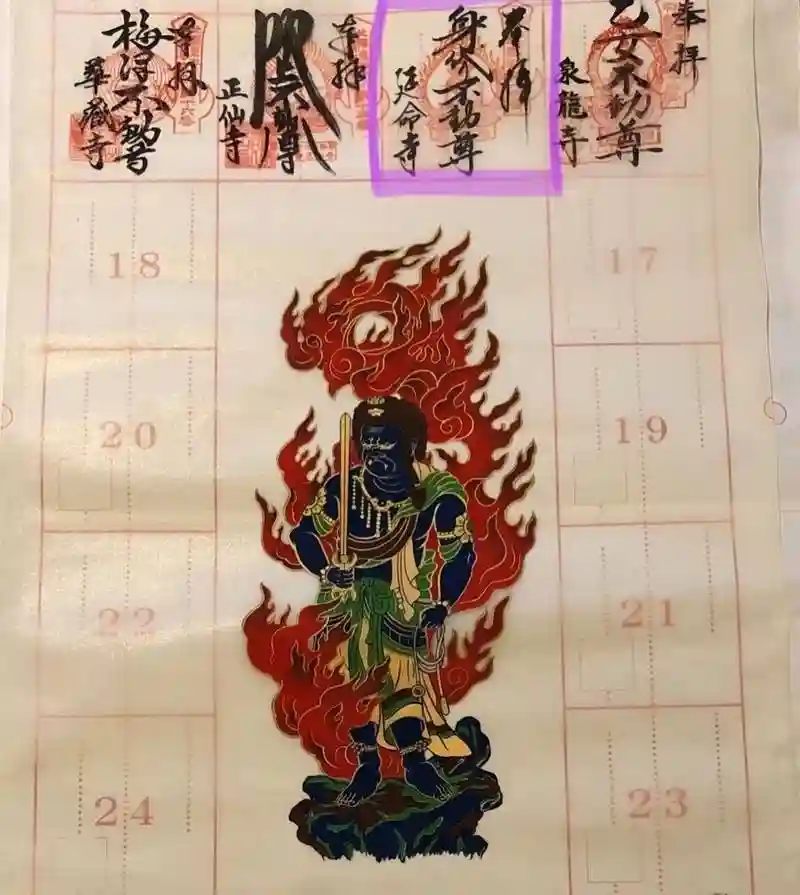 奉拝
乙女不動尊
泉龍寺
奉拝
身代不動尊
延命寺
奉拝
不動尊
正仙寺
奉拝
不動尊
華蔵寺
17
18
19
20
21
22
23
24